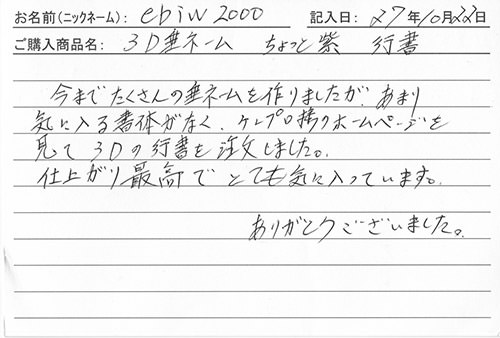 お名前(ニックネーム): ebiw2000 記入日: 27年10月22日
ご購入商品名: 3D垂ネーム ちょっと紫 行書
今までたくさんの垂ネームを作りましたが、あまり
気に入る書体がなく、ケンプロ様のホームページを
見て3Dの行書を注文しました。
仕上がり最高でとても気に入っています。
ありがとうございました。